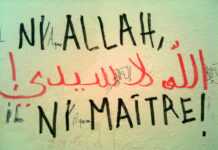 NI ALLAH,
الله لا سيدي!
NI MAÎTRE!